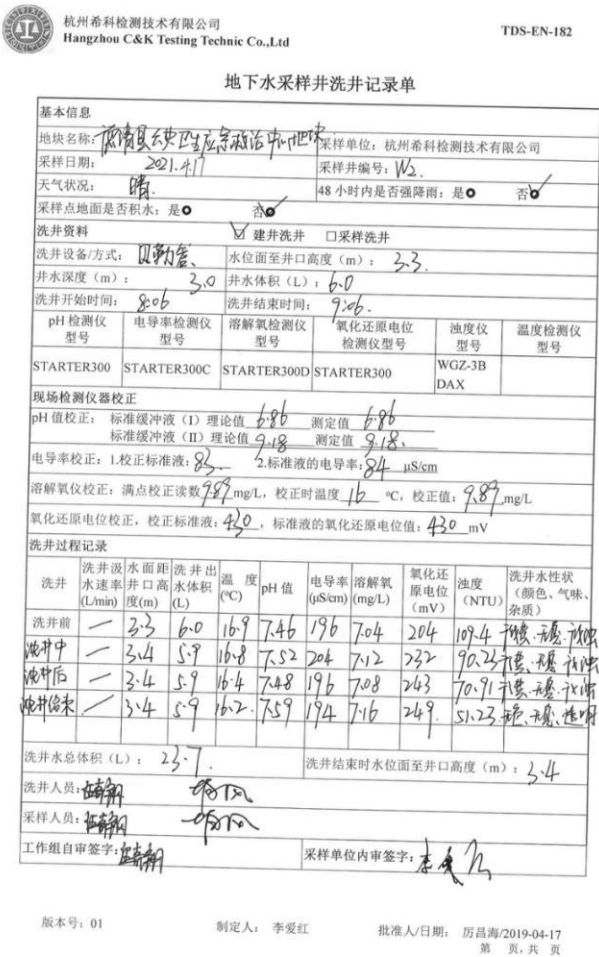 杭州希科检测技术有限公司
Hangzhou C&K Testing Technic Co.,Ltd
TDS-EN-182
地下水采样井洗井记录单
基本信息
地块名称： 采样单位：杭州希科检测技术有限公司
采样日期： 2021.4.17 采样井编号：W2.
天气状况： 晴 48 小时内是否强降雨：是 否✓
采样点地面是否积水：是 否✓
洗井资料 ☑ 建井洗井 □采样洗井
洗井设备/方式：贝勒管、 水位面至井口高度（m）：3.3.
井水深度（m）： 3.0 井水体积（L）：6.0
洗井开始时间： 8:06 洗井结束时间： 9:06.
pH 检测仪型号 电导率检测仪型号 溶解氧检测仪型号 氧化还原电位检测仪型号 浊度仪型号 温度检测仪型号
STARTER300 STARTER300C STARTER300D STARTER300 WGZ-3B DAX
现场检测仪器校正
pH 值校正： 标准缓冲液（I）理论值 6.86 测定值 6.86
标准缓冲液（II）理论值 9.18 测定值 9.18.
电导率校正：1.校正标准液：83 2.标准液的电导率：84 μS/cm
溶解氧仪校正：满点校正读数9.89mg/L，校正时温度 16 ℃，校正值：9.89 mg/L
氧化还原电位校正，校正标准液：430，标准液的氧化还原电位值：430 mV
洗井过程记录
洗井 洗井汲水速率(L/min) 水面距井口高度(m) 洗井出水体积(L) 温度(℃) pH 值 电导率(μS/cm) 溶解氧(mg/L) 氧化还原电位(mV) 浊度(NTU) 洗井水性状（颜色、气味、杂质）
洗井前 — 3.3 6.0 16.9 7.46 196 7.04 204 109.4
洗井中 — 3.4 5.9 16.8 7.52 204 7.12 232 90.23
洗井后 — 3.4 5.9 16.4 7.48 196 7.08 243 70.91
洗井结束 — 3.4 5.9 16.2 7.59 194 7.16 249 51.23 无色、无臭、透明
洗井水总体积（L）： 23.7. 洗井结束时水位面至井口高度（m）：3.4
洗井人员：
采样人员：
工作组自审签字： 采样单位内审签字：
版本号：01 制定人： 李爱红 批准人/日期： 厉昌海/2019-04-17
第 页，共 页